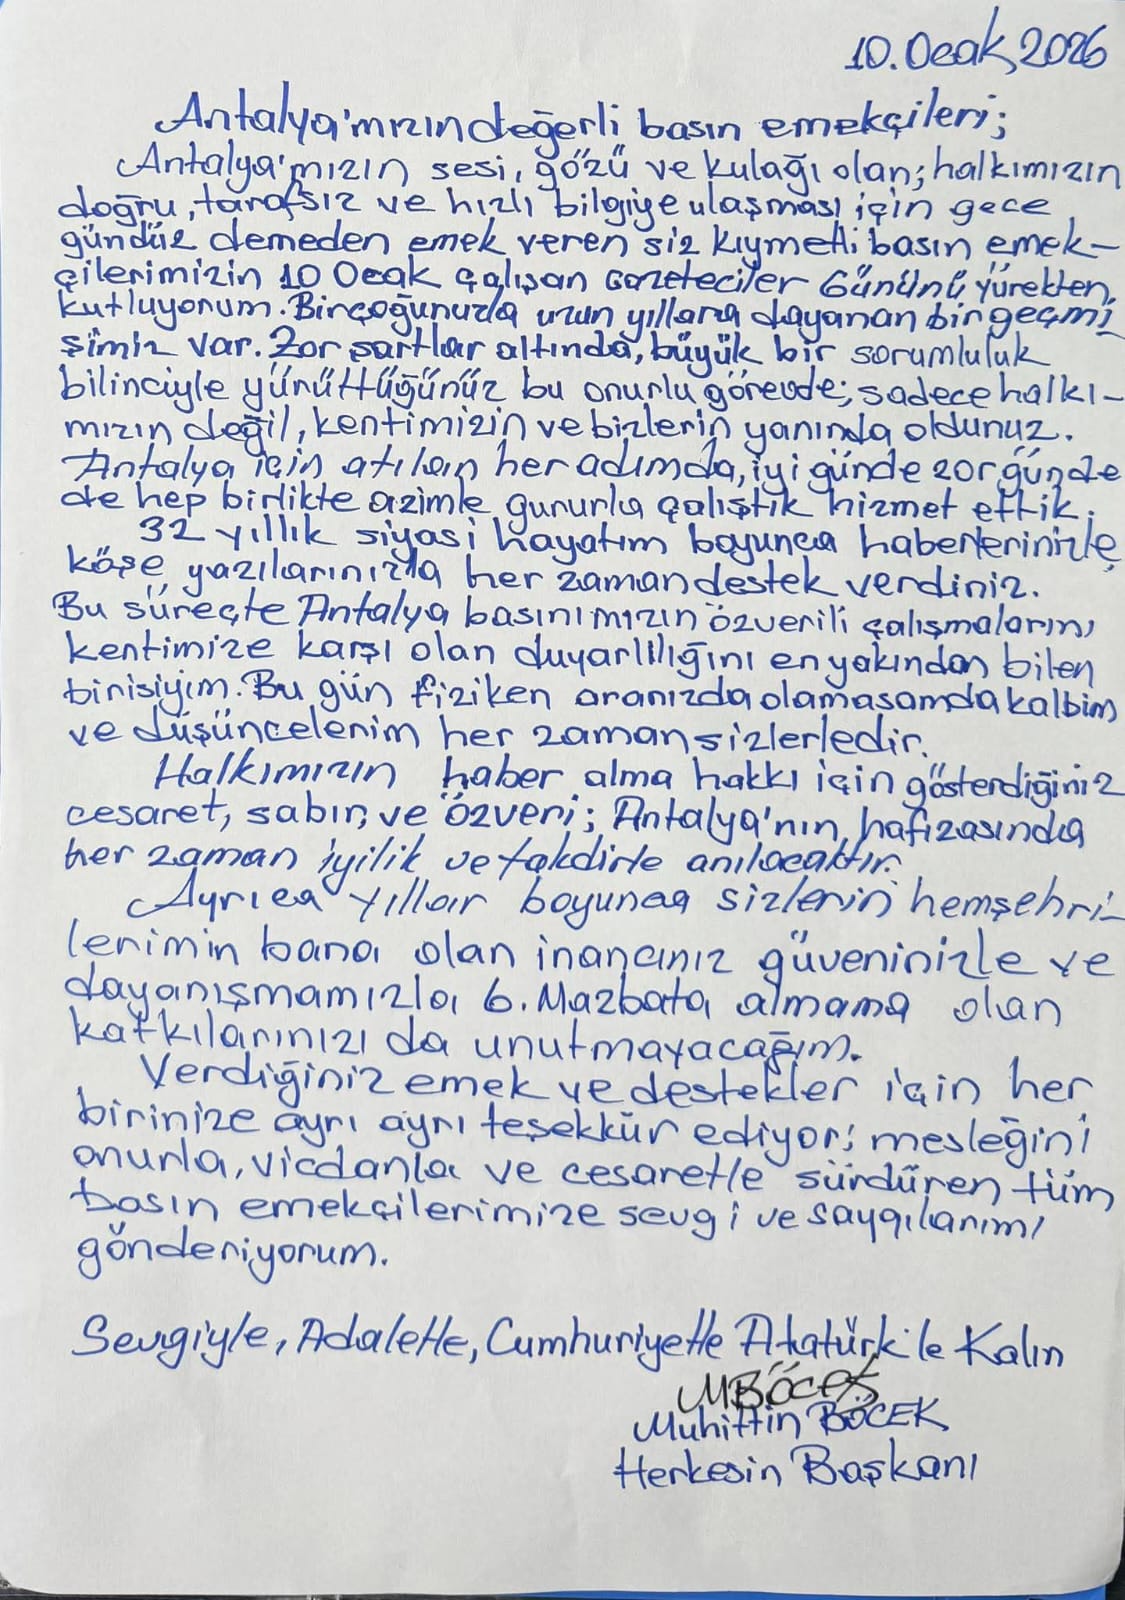 10.Ocak,2026
Antalya'mızın değerli basın emekçileri;
Antalya'mızın sesi, gözü ve kulağı olan; halkımızın
doğru, tarafsız ve hızlı bilgiye ulaşması için gece
gündüz demeden emek veren siz kıymetli basın emek-
çilerimizin 10 Ocak Çalışan Gazeteciler Gününü yürekten
kutluyorum. Birçoğunuzla uzun yıllara dayanan bir geçmi
şimiz var. Zor şartlar altında, büyük bir sorumluluk
bilinciyle yürüttüğünüz bu onurlu görevde; sadece halkı-
mızın değil, kentimizin ve bizlerin yanında oldunuz.
Antalya için atılan her adımda, iyi günde zor günde
de hep birlikte azimle gururla çalıştık hizmet ettik.
32 yıllık siyasi hayatım boyunca haberlerinizle,
köşe yazılarınızla her zaman destek verdiniz.
Bu süreçte Antalya basınımızın özverili çalışmalarını
kentimize karşı olan duyarlılığını en yakından bilen
birisiyim. Bu gün fiziken aranızda olamasamda kalbim
ve düşüncelerim her zaman sizlerledir.
Halkımızın haber alma hakkı için gösterdiğiniz
cesaret, sabır, ve özveri; Antalya'nın hafızasında
her zaman iyilik ve takdirle anılacaktır.
Ayrıca yıllar boyunca sizlerin hemşehri-
lerimin bana olan inancınız güveninizle ve
dayanışmamızla 6. Mazbata almama olan
katkılarınızı da unutmayacağım.
Verdiğiniz emek ve destekler için her
birinize ayrı ayrı teşekkür ediyor; mesleğini
onurla, vicdanla ve cesaretle sürdüren tüm
basın emekçilerimize sevgi ve saygılarımı
gönderiyorum.
Sevgiyle, Adaletle, Cumhuriyetle Atatürk'le Kalın
MBÖCEK
Muhittin BÖCEK
Herkesin Başkanı